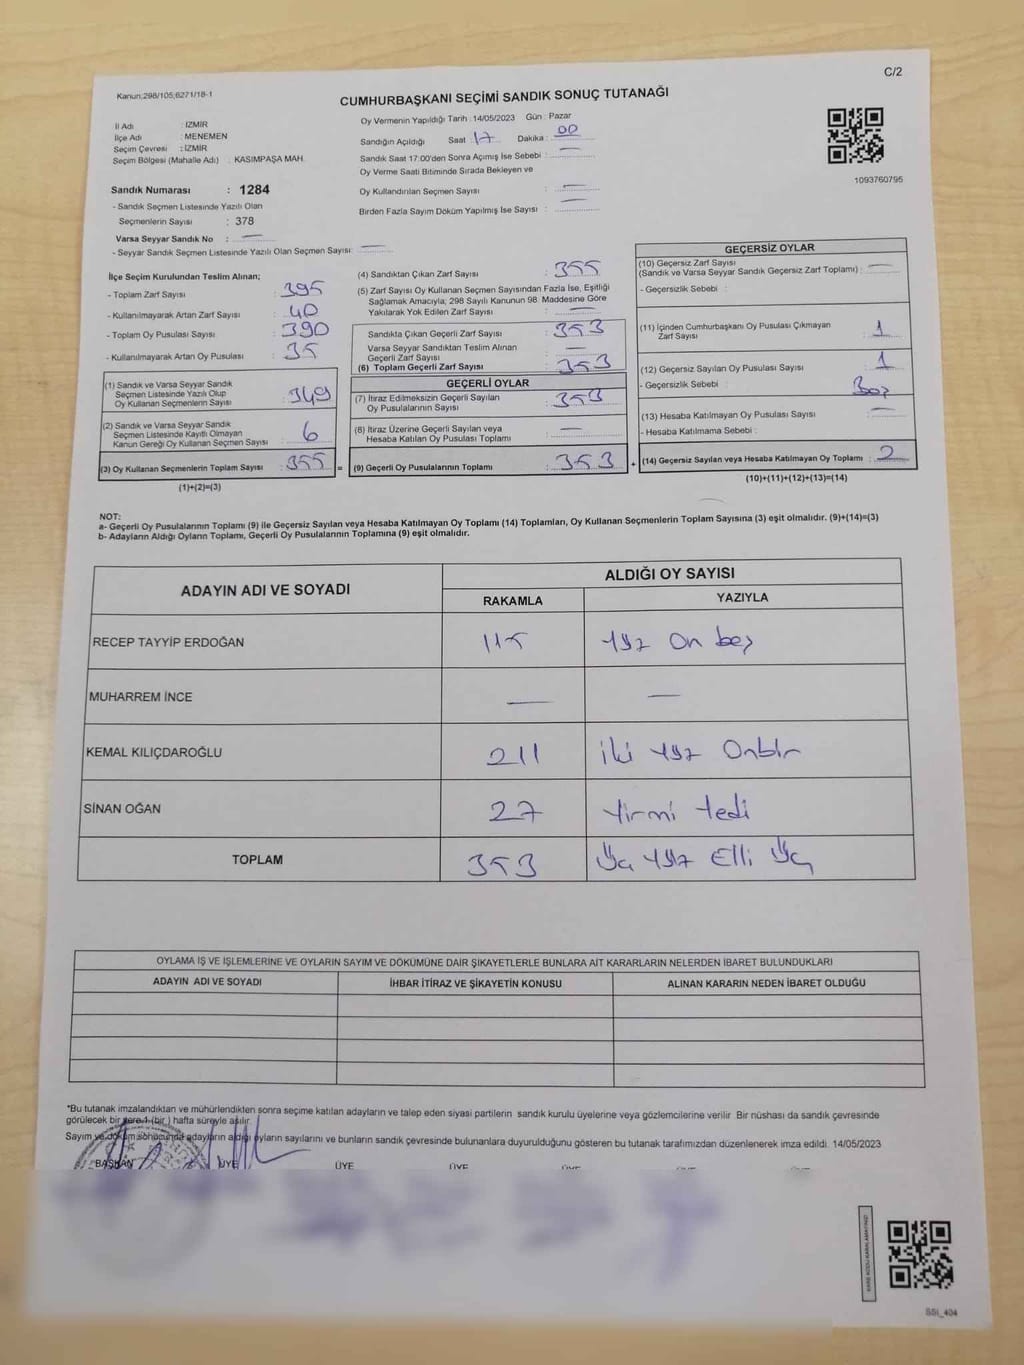 C/2
Kanun;298/105,6271/18-1
CUMHURBAŞKANI SEÇİMİ SANDIK SONUÇ TUTANAĞI
İl Adı : İZMİR
İlçe Adı : MENEMEN
Seçim Çevresi : İZMİR
Seçim Bölgesi (Mahalle Adı) : KASIMPAŞA MAH.
Sandık Numarası : 1284
- Sandık Seçmen Listesinde Yazılı Olan
Seçmenlerin Sayısı : 378
Varsa Seyyar Sandık No : —
- Seyyar Sandık Seçmen Listesinde Yazılı Olan Seçmen Sayısı: —
Oy Vermenin Yapıldığı Tarih : 14/05/2023 Gün : Pazar
Sandığın Açıldığı Saat 17 Dakika : 00
Sandık Saat 17:00'den Sonra Açımış İse Sebebi : —
Oy Verme Saati Bitiminde Sırada Bekleyen ve
Oy Kullandırılan Seçmen Sayısı : —
Birden Fazla Sayım Döküm Yapılmış İse Sayısı : —
1093760795
İlçe Seçim Kurulundan Teslim Alınan;
- Toplam Zarf Sayısı : 395
- Kullanılmayarak Artan Zarf Sayısı : 40
- Toplam Oy Pusulası Sayısı : 390
- Kullanılmayarak Artan Oy Pusulası : 35
(1) Sandık ve Varsa Seyyar Sandık
Seçmen Listesinde Yazılı Olup
Oy Kullanan Seçmenlerin Sayısı : 349
(2) Sandık ve Varsa Seyyar Sandık
Seçmen Listesinde Kayıtlı Olmayan
Kanun Gereği Oy Kullanan Seçmen Sayısı : 6
(3) Oy Kullanan Seçmenlerin Toplam Sayısı : 355 =
(1)+(2)=(3)
(4) Sandıktan Çıkan Zarf Sayısı : 355
(5) Zarf Sayısı Oy Kullanan Seçmen Sayısından Fazla İse, Eşitliği
Sağlamak Amacıyla; 298 Sayılı Kanunun 98. Maddesine Göre
Yakılarak Yok Edilen Zarf Sayısı : —
Sandıkta Çıkan Geçerli Zarf Sayısı : 353
Varsa Seyyar Sandıktan Teslim Alınan
Geçerli Zarf Sayısı : —
(6) Toplam Geçerli Zarf Sayısı : 353
GEÇERLİ OYLAR
(7) İtiraz Edilmeksizin Geçerli Sayılan
Oy Pusulalarının Sayısı : 353
(8) İtiraz Üzerine Geçerli Sayılan veya
Hesaba Katılan Oy Pusulası Toplamı : —
(9) Geçerli Oy Pusulalarının Toplamı : 353 +
GEÇERSİZ OYLAR
(10) Geçersiz Zarf Sayısı
(Sandık ve Varsa Seyyar Sandık Geçersiz Zarf Toplamı) : —
- Geçersizlik Sebebi :
(11) İçinden Cumhurbaşkanı Oy Pusulası Çıkmayan
Zarf Sayısı : 1
(12) Geçersiz Sayılan Oy Pusulası Sayısı : 1
- Geçersizlik Sebebi : Boş
(13) Hesaba Katılmayan Oy Pusulası Sayısı : —
- Hesaba Katılmama Sebebi :
(14) Geçersiz Sayılan veya Hesaba Katılmayan Oy Toplamı : 2
(10)+(11)+(12)+(13)=(14)
NOT:
a- Geçerli Oy Pusulalarının Toplamı (9) ile Geçersiz Sayılan veya Hesaba Katılmayan Oy Toplamı (14) Toplamları, Oy Kullanan Seçmenlerin Toplam Sayısına (3) eşit olmalıdır. (9)+(14)=(3)
b- Adayların Aldığı Oyların Toplamı, Geçerli Oy Pusulalarının Toplamına (9) eşit olmalıdır.
ADAYIN ADI VE SOYADI
ALDIĞI OY SAYISI
RAKAMLA YAZIYLA
RECEP TAYYİP ERDOĞAN 115 Yüz On beş
MUHARREM İNCE — —
KEMAL KILIÇDAROĞLU 211 iki Yüz Onbir
SİNAN OĞAN 27 Yirmi Yedi
TOPLAM 353 Üç Yüz Elli Üç
OYLAMA İŞ VE İŞLEMLERİNE VE OYLARIN SAYIM VE DÖKÜMÜNE DAİR ŞİKAYETLERLE BUNLARA AİT KARARLARIN NELERDEN İBARET BULUNDUKLARI
ADAYIN ADI VE SOYADI İHBAR İTİRAZ VE ŞİKAYETİN KONUSU ALINAN KARARIN NEDEN İBARET OLDUĞU
*Bu tutanak imzalandıktan ve mühürlendikten sonra seçime katılan adayların ve talep eden siyasi partilerin sandık kurulu üyelerine veya gözlemcilerine verilir Bir nüshası da sandık çevresinde
görülecek bir yere 1 (bir ) hafta süreyle asılır.
Sayım ve döküm sonucunda adayların aldığı oyların sayılarını ve bunların sandık çevresinde bulunanlara duyurulduğunu gösteren bu tutanak tarafımızdan düzenlenerek imza edildi. 14/05/2023
BAŞKAN ÜYE ÜYE ÜYE ÜYE ÜYE
SSI_404